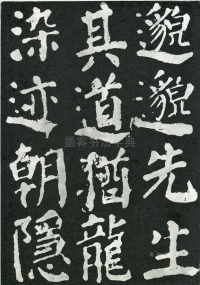 邈邈先生
其道猶龍
染迹朝隱
墨客书法字典